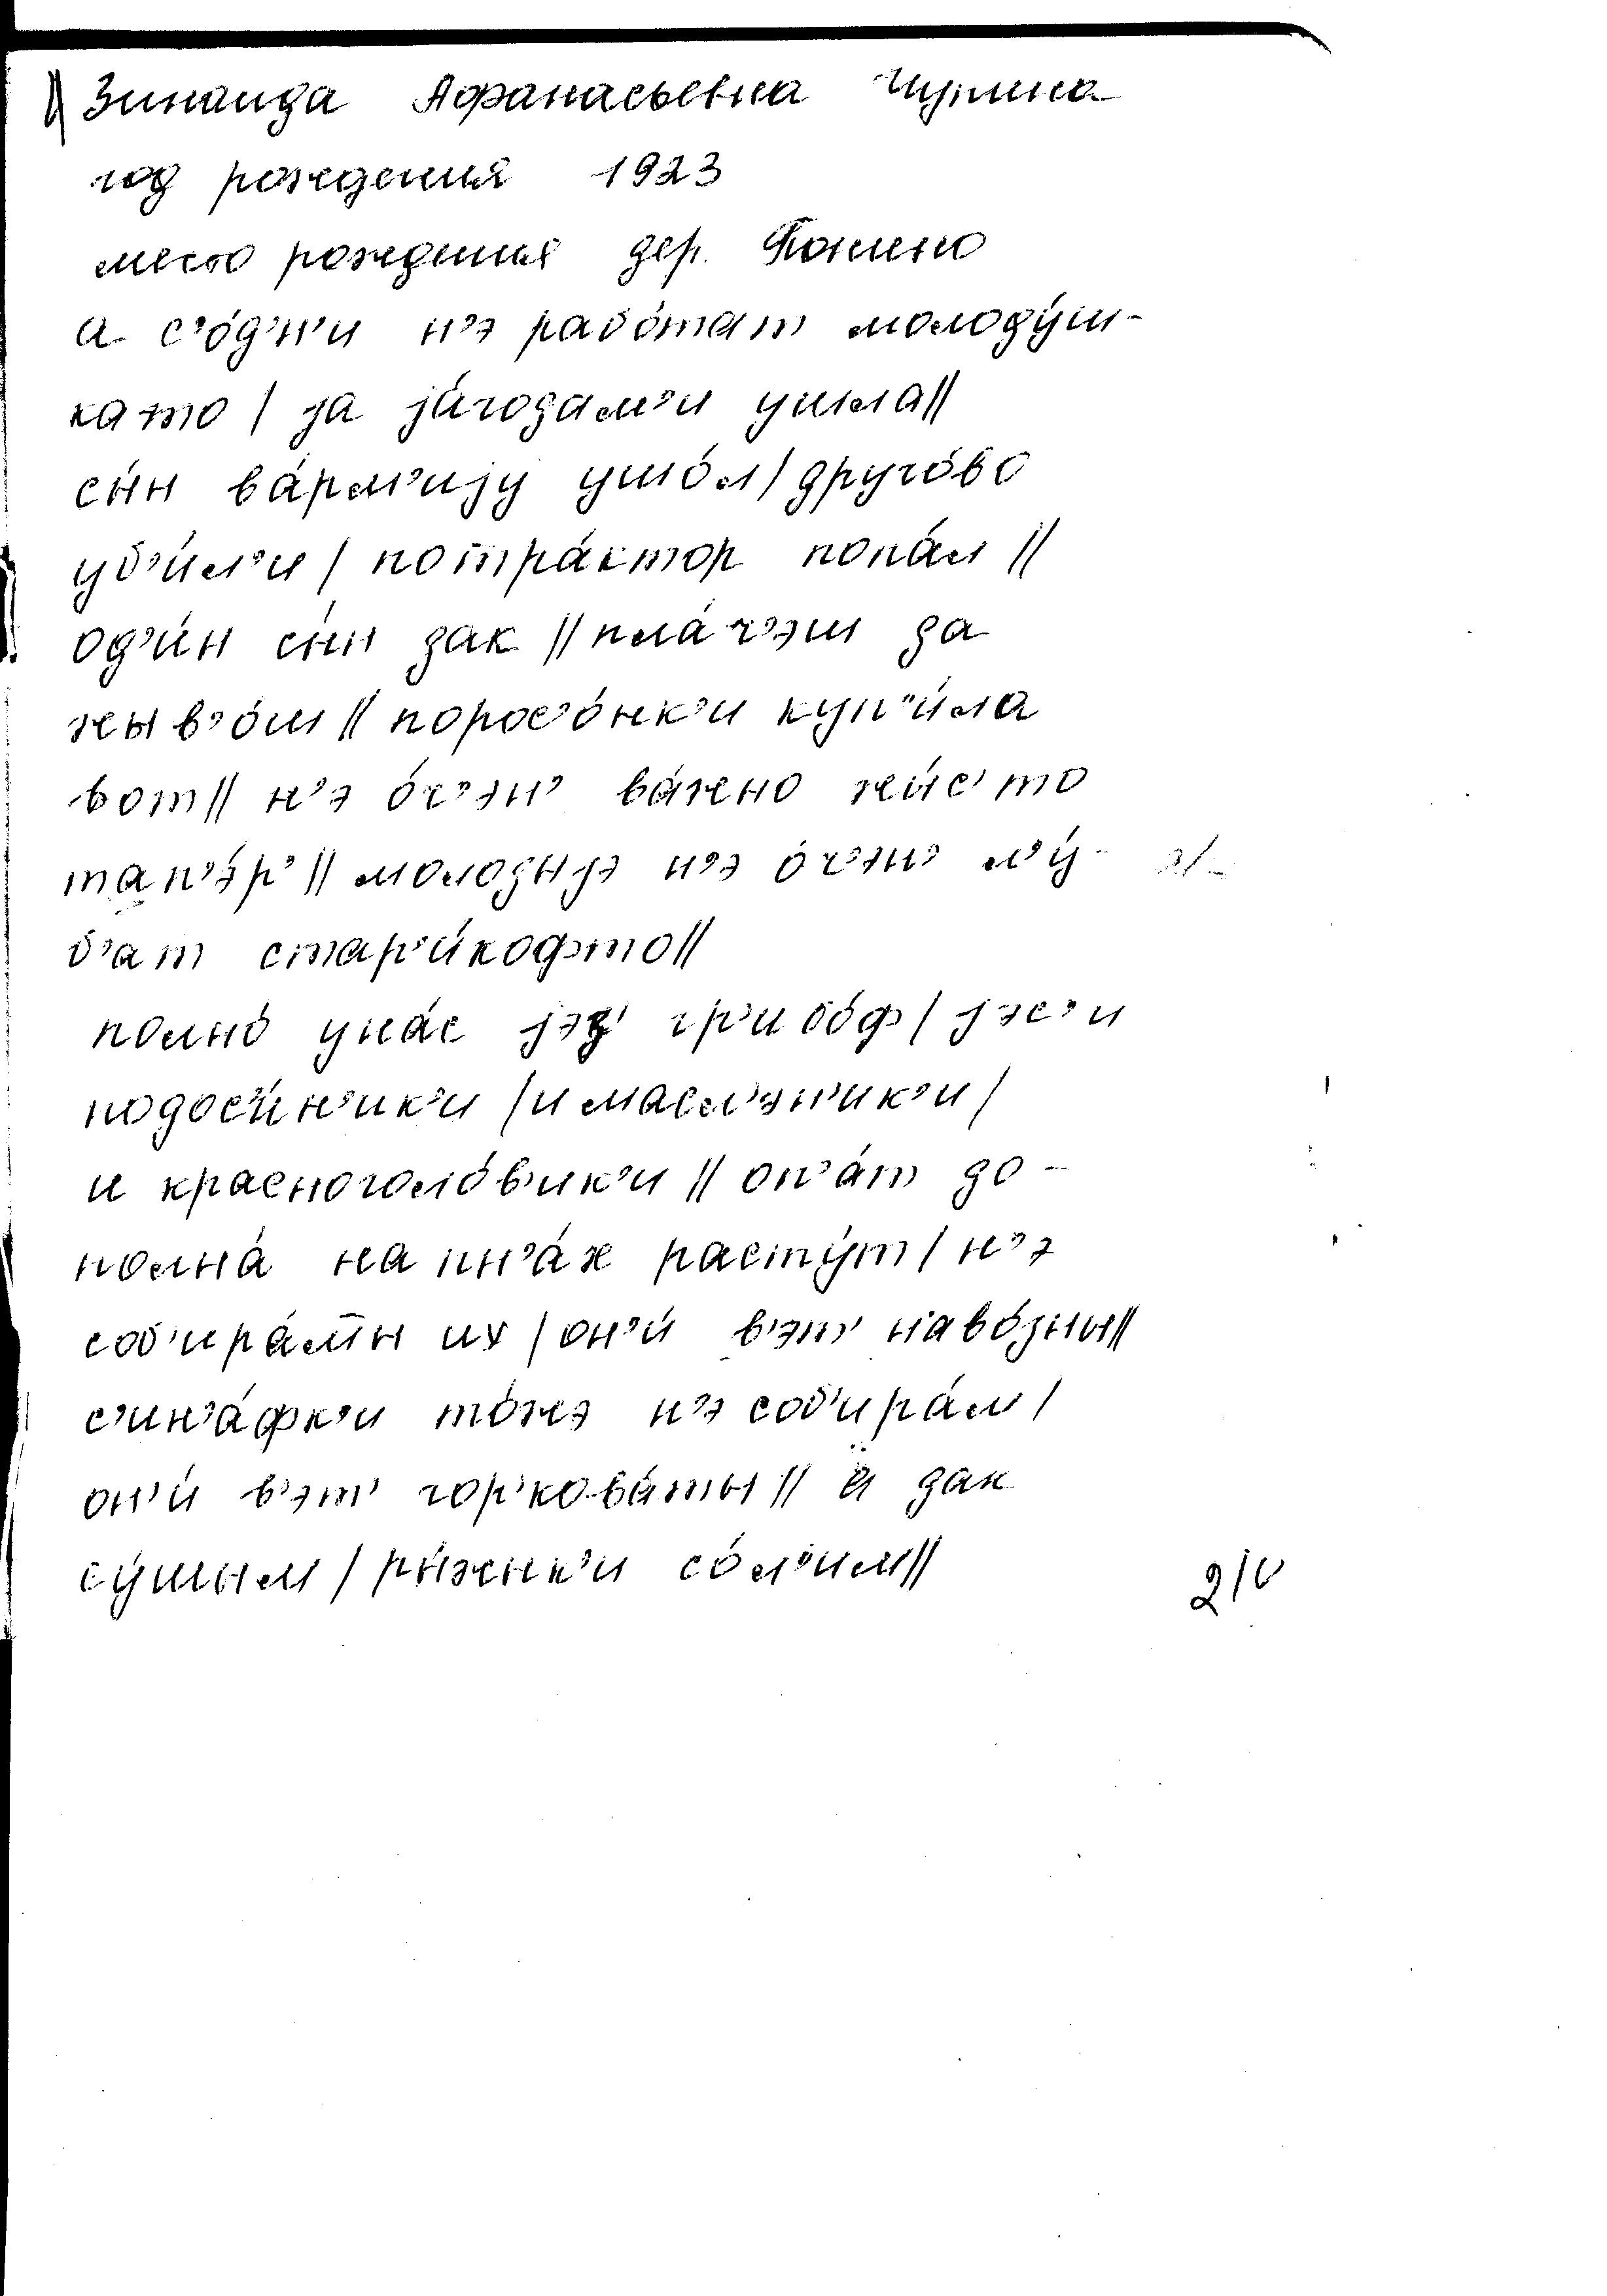 Зинаида Афанасьевна
год рождения 1923
место рождения дер. Понино
а с'о́д'н'и н'э рабо́тат молоду́ш-
ка то / за jа́годам'и ушла //
сы́н ва́рм'иjу ушо́л / друго́во
уб'и́л'и / потра́ктор попа́л //
од'и́н сы́н дак // пла́ч'эш да
жыв'о́ш // порос'о́нк'и куп'и́ла
вот // н'э о́ч'эн' ва́жно жы́с' то
тап'э́р' // молодыjэ н'э о́ч'эн' л'у́-
б'ат стар'и́кофто //
полно́ уна́с jэд' гр'ибо́ф / jэс'и
подос'и́н'ик'и / и масл'эн'ик'и /
и красноголо́в'ик'и // оп'а́т до-
полна́ на пн'а́х расту́т / н'э
соб'ира́м ы их / он'и́ в'эт' наво́зны //
с'ин'а́фк'и то́жэ н'э соб'ира́м /
он'и́ в'эт' гор'кова́ты // а дак
су́шым / ры́жык'и со́л'им //